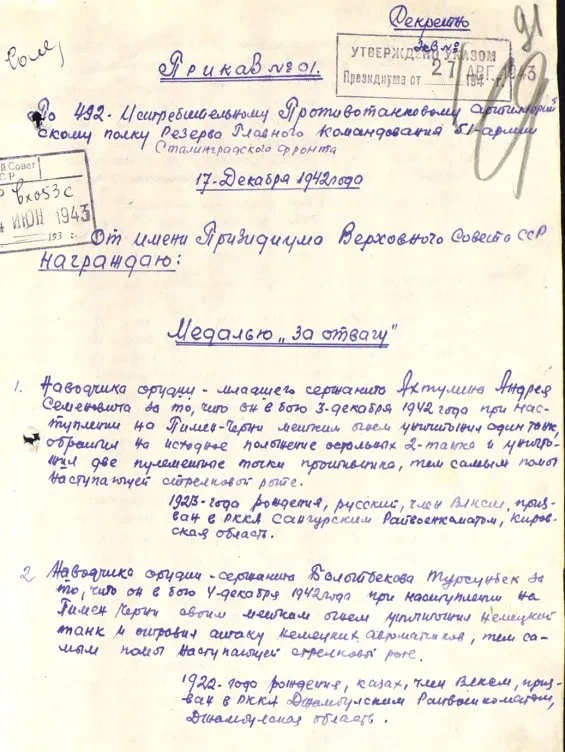 Секретно
Экв. №
91
УТВЕРЖДЕНО УКАЗОМ
Президиума от 27 АВГ. 1943
Приказ № 01.
По 492 - Истребительному Противотанковому артиллерий
скому полку Резерва Главного командования 51-армии
Сталинградского фронта
17-Декабря 1942 года
й Совет
СР
вх053с
4 ИЮН 1943
193 г.
От имени Призидиума Верховного Совета СССР
награждаю:
Медалью „За отвагу"
1. Наводчика орудии - младшего сержанта Ахтулина Андрея
Семеновича за то, что он в бою 3-декабря 1942 года при нас-
туплении на Гимен-Черни метким огнем уничтожил один танк,
обратил на исходное положение остальных 2-танка и уничто-
жил две пулеметные точки противника, тем самым помог
наступающей стрелковой роте.
1923-года рождения, русский, член ВЛКСМ, приз-
ван в РККА Сангурским Райвоенкоматом, Киров-
ская область.
2 Наводчика орудии - сержанта Балытбекова Турсунбек за
то, что он в бою 4-декабря 1942 года при наступлении на
Гимен Черни своим метким огнем уничтожил немецкий
танк и отразил атаку немецких автоматчиков, тем са-
мым помог наступающей стрелковой роте.
1922-года рождения, казах, член ВЛКСМ, приз-
ван в РККА Джамбулским Райвоенкоматом,
Джамбулская область.